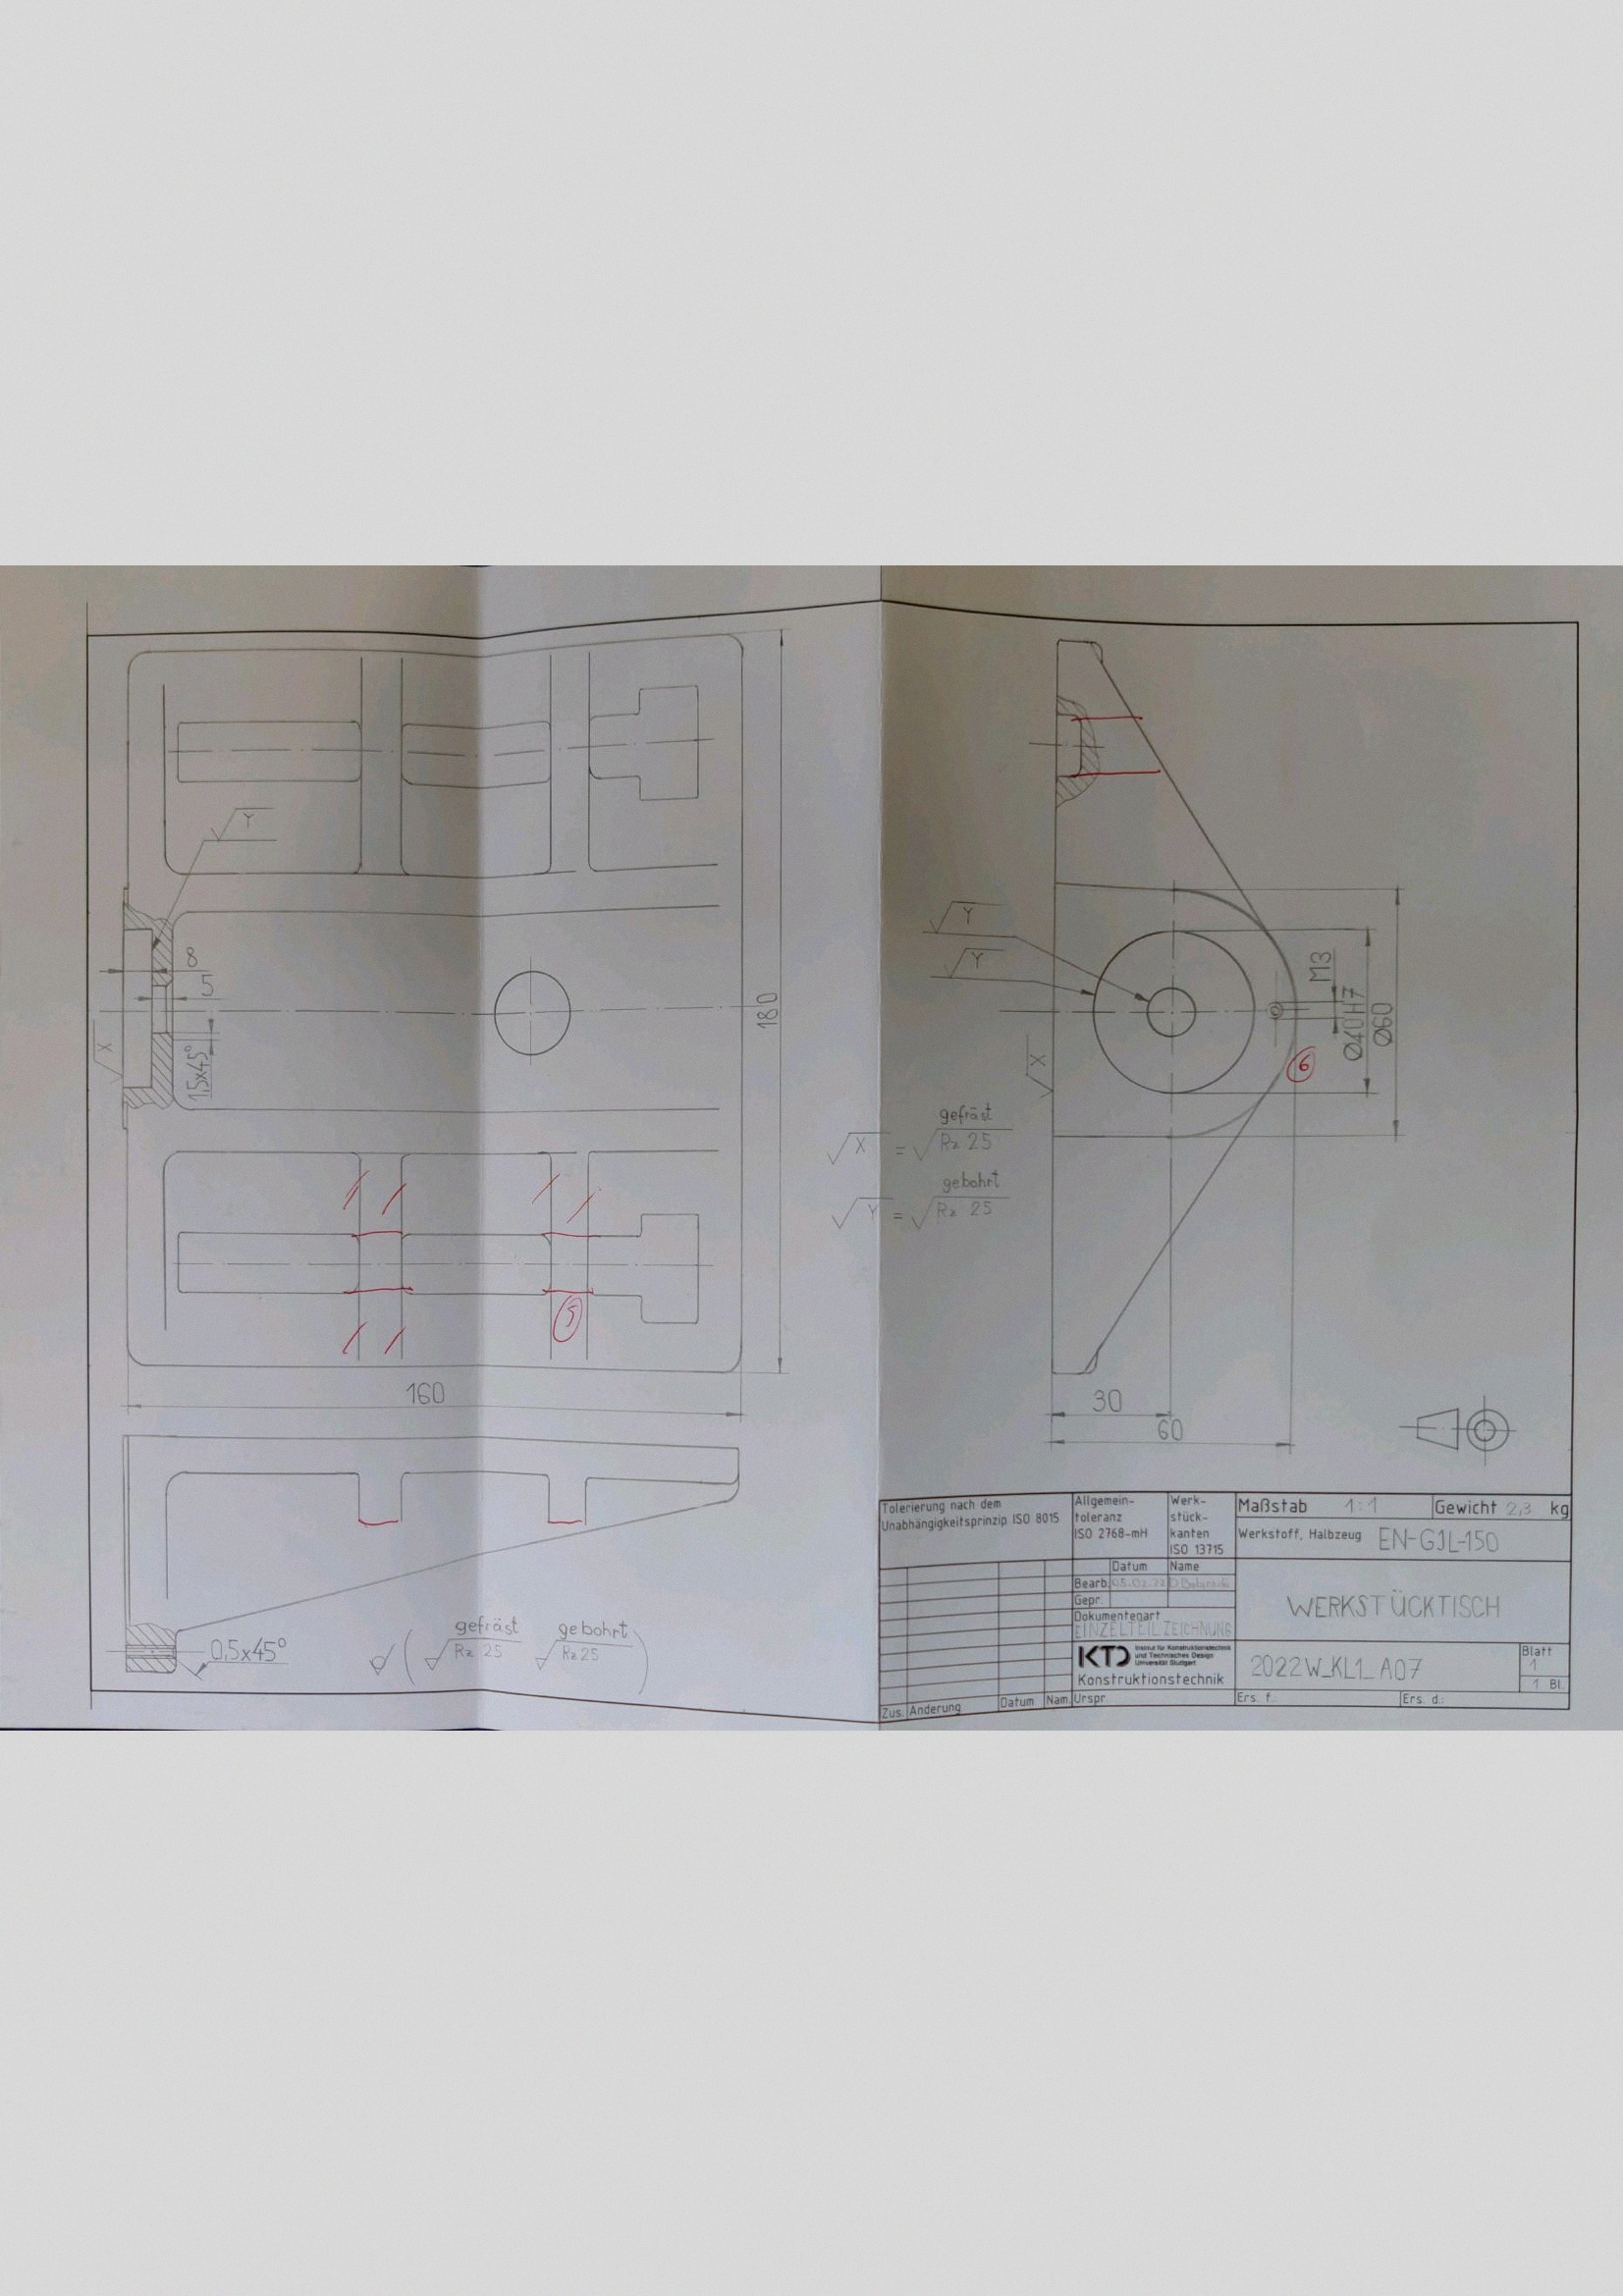 Y
8
5
X
1,5x45°
180
5
160
Y
Y
M3
Ø40H7
Ø60
6
X
gefräst
X = Rz 25
gebohrt
Y = Rz 25
30
60
0,5x45°
gefräst gebohrt
( Rz 25 Rz 25 )
Tolerierung nach dem
Unabhängigkeitsprinzip ISO 8015
Allgemein-
toleranz
ISO 2768-mH
Werk-
stück-
kanten
ISO 13715
Maßstab 1:1 Gewicht 2,3 kg
Werkstoff, Halbzeug EN-GJL-150
Datum Name
Bearb.
Gepr.
Dokumentenart
EINZELTEIL ZEICHNUNG
WERKSTÜCKTISCH
KTD Institut für Konstruktionstechnik
und Technisches Design
Universität Stuttgart
Konstruktionstechnik
2022W_KL1_A07
Blatt
1
1 Bl.
Zus. Änderung Datum Nam. Urspr. Ers. f.: Ers. d.: